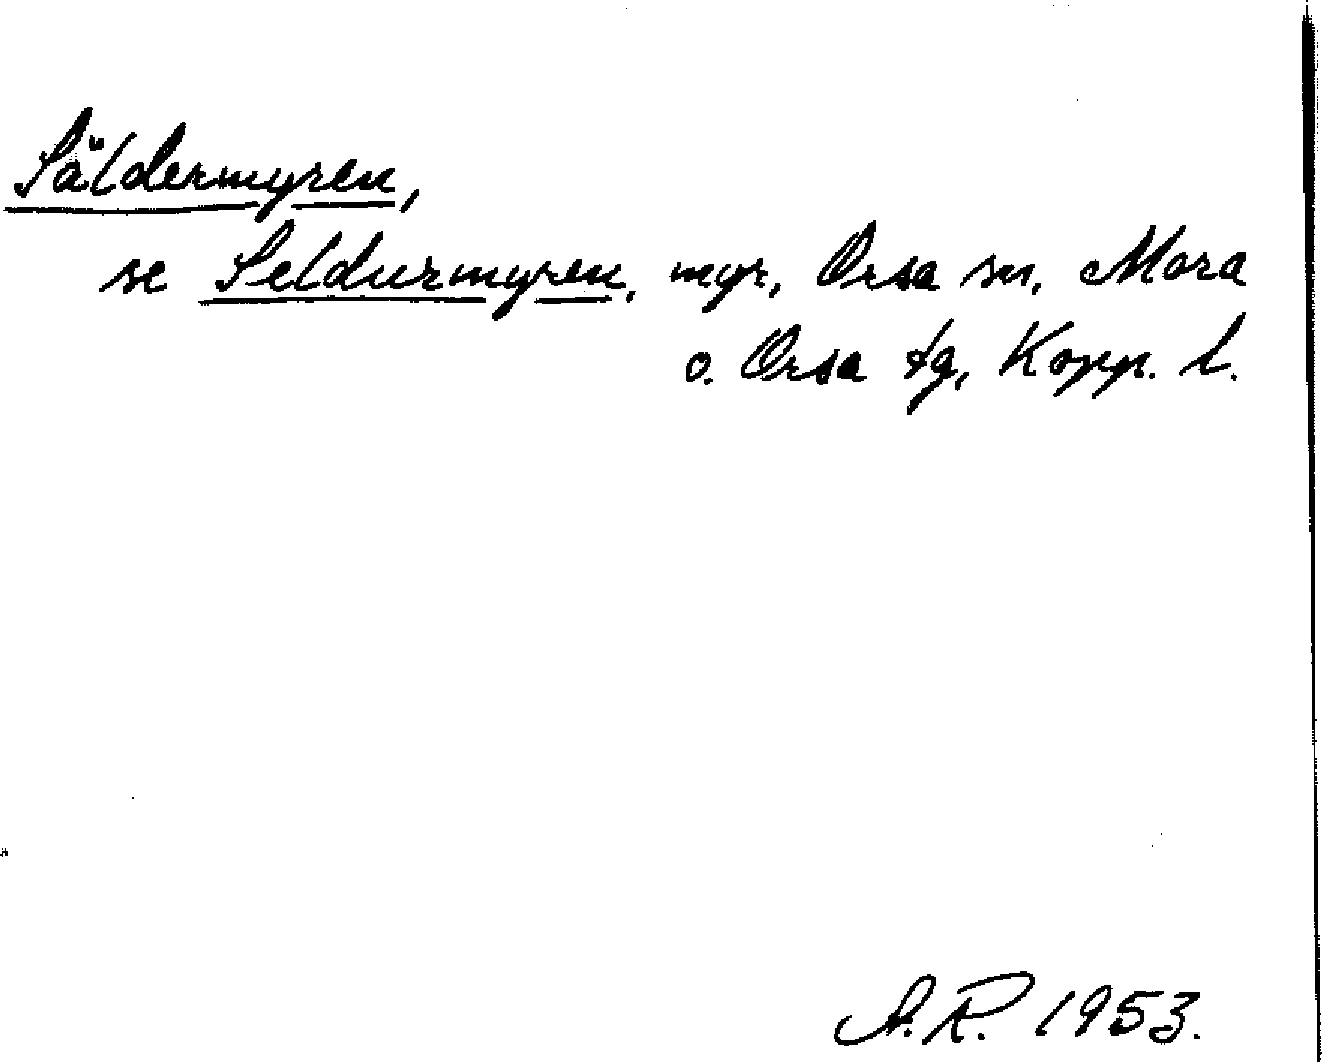 Säldermyren,
se Seldurmyren, myr, Orsa sn, Mora
o. Orsa tg, Kopp. l.
A.R. 1953.